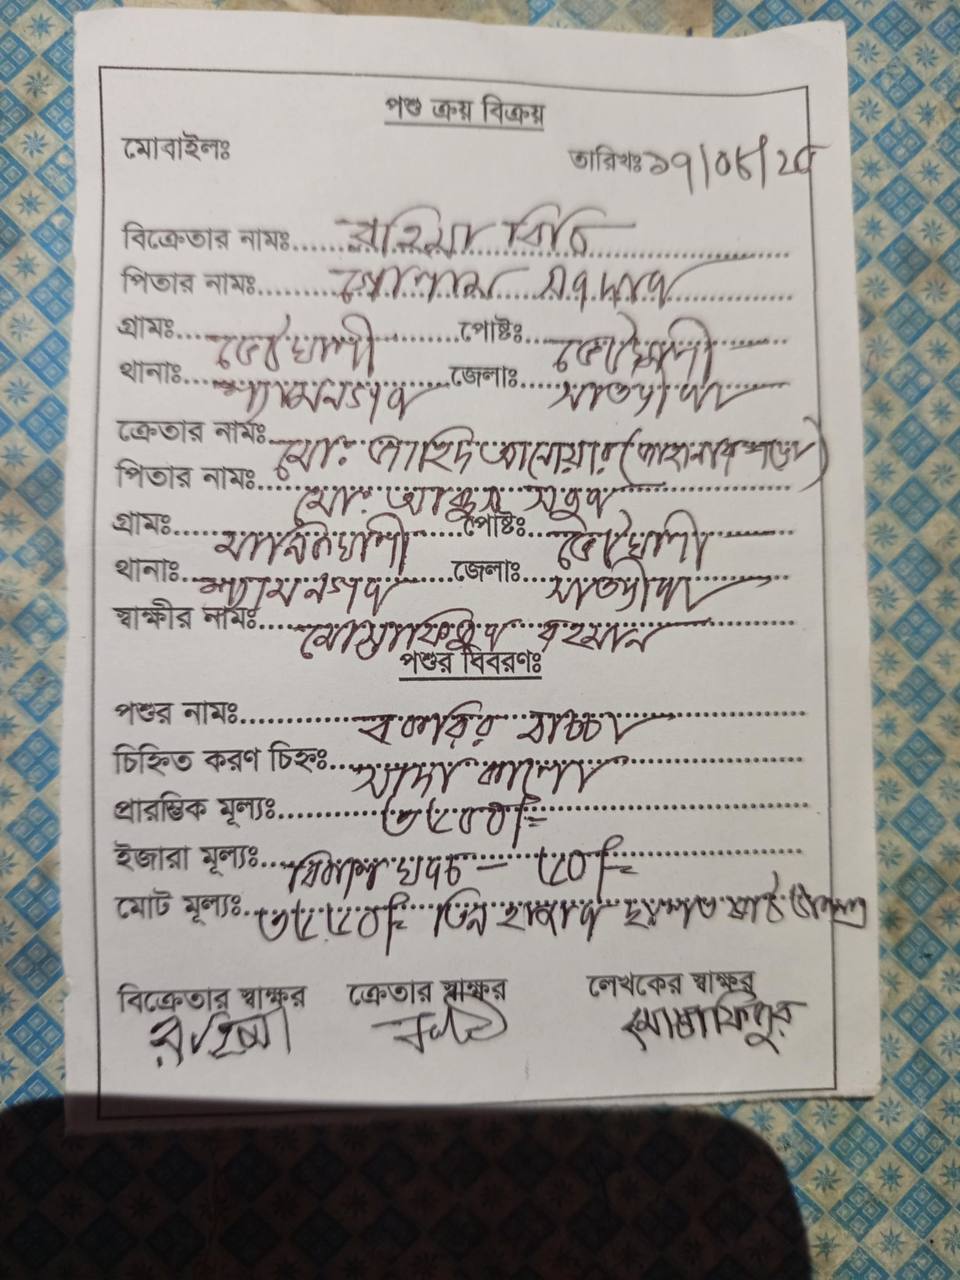 পশু ক্রয় বিক্রয়
মোবাইলঃ তারিখঃ ১৭/০৮/২৫
বিক্রেতার নামঃ রহিমা বিবি
পিতার নামঃ গোপাল সরদার
গ্রামঃ ভেটখালী পোষ্টঃ ভেটখালী
থানাঃ শ্যামনগর জেলাঃ সাতক্ষীরা
ক্রেতার নামঃ মো: শাহিদ আনোয়ার
পিতার নামঃ মো: আব্দুস সবুর
গ্রামঃ মানিকখালী পোষ্টঃ ভেটখালী
থানাঃ শ্যামনগর জেলাঃ সাতক্ষীরা
স্বাক্ষীর নামঃ মোস্তাফিজুর রহমান
পশুর বিবরণঃ
পশুর নামঃ বকরির বাচ্চা
চিহ্নিত করণ চিহ্নঃ সাদা কালো
প্রারম্ভিক মূল্যঃ ৩৫০০/=
ইজারা মূল্যঃ খরচ - ৫০/=
মোট মূল্যঃ ৩৫৫০/= তিন হাজার
বিক্রেতার স্বাক্ষর ক্রেতার স্বাক্ষর লেখকের স্বাক্ষর
রহিমা মোস্তাফিজুর